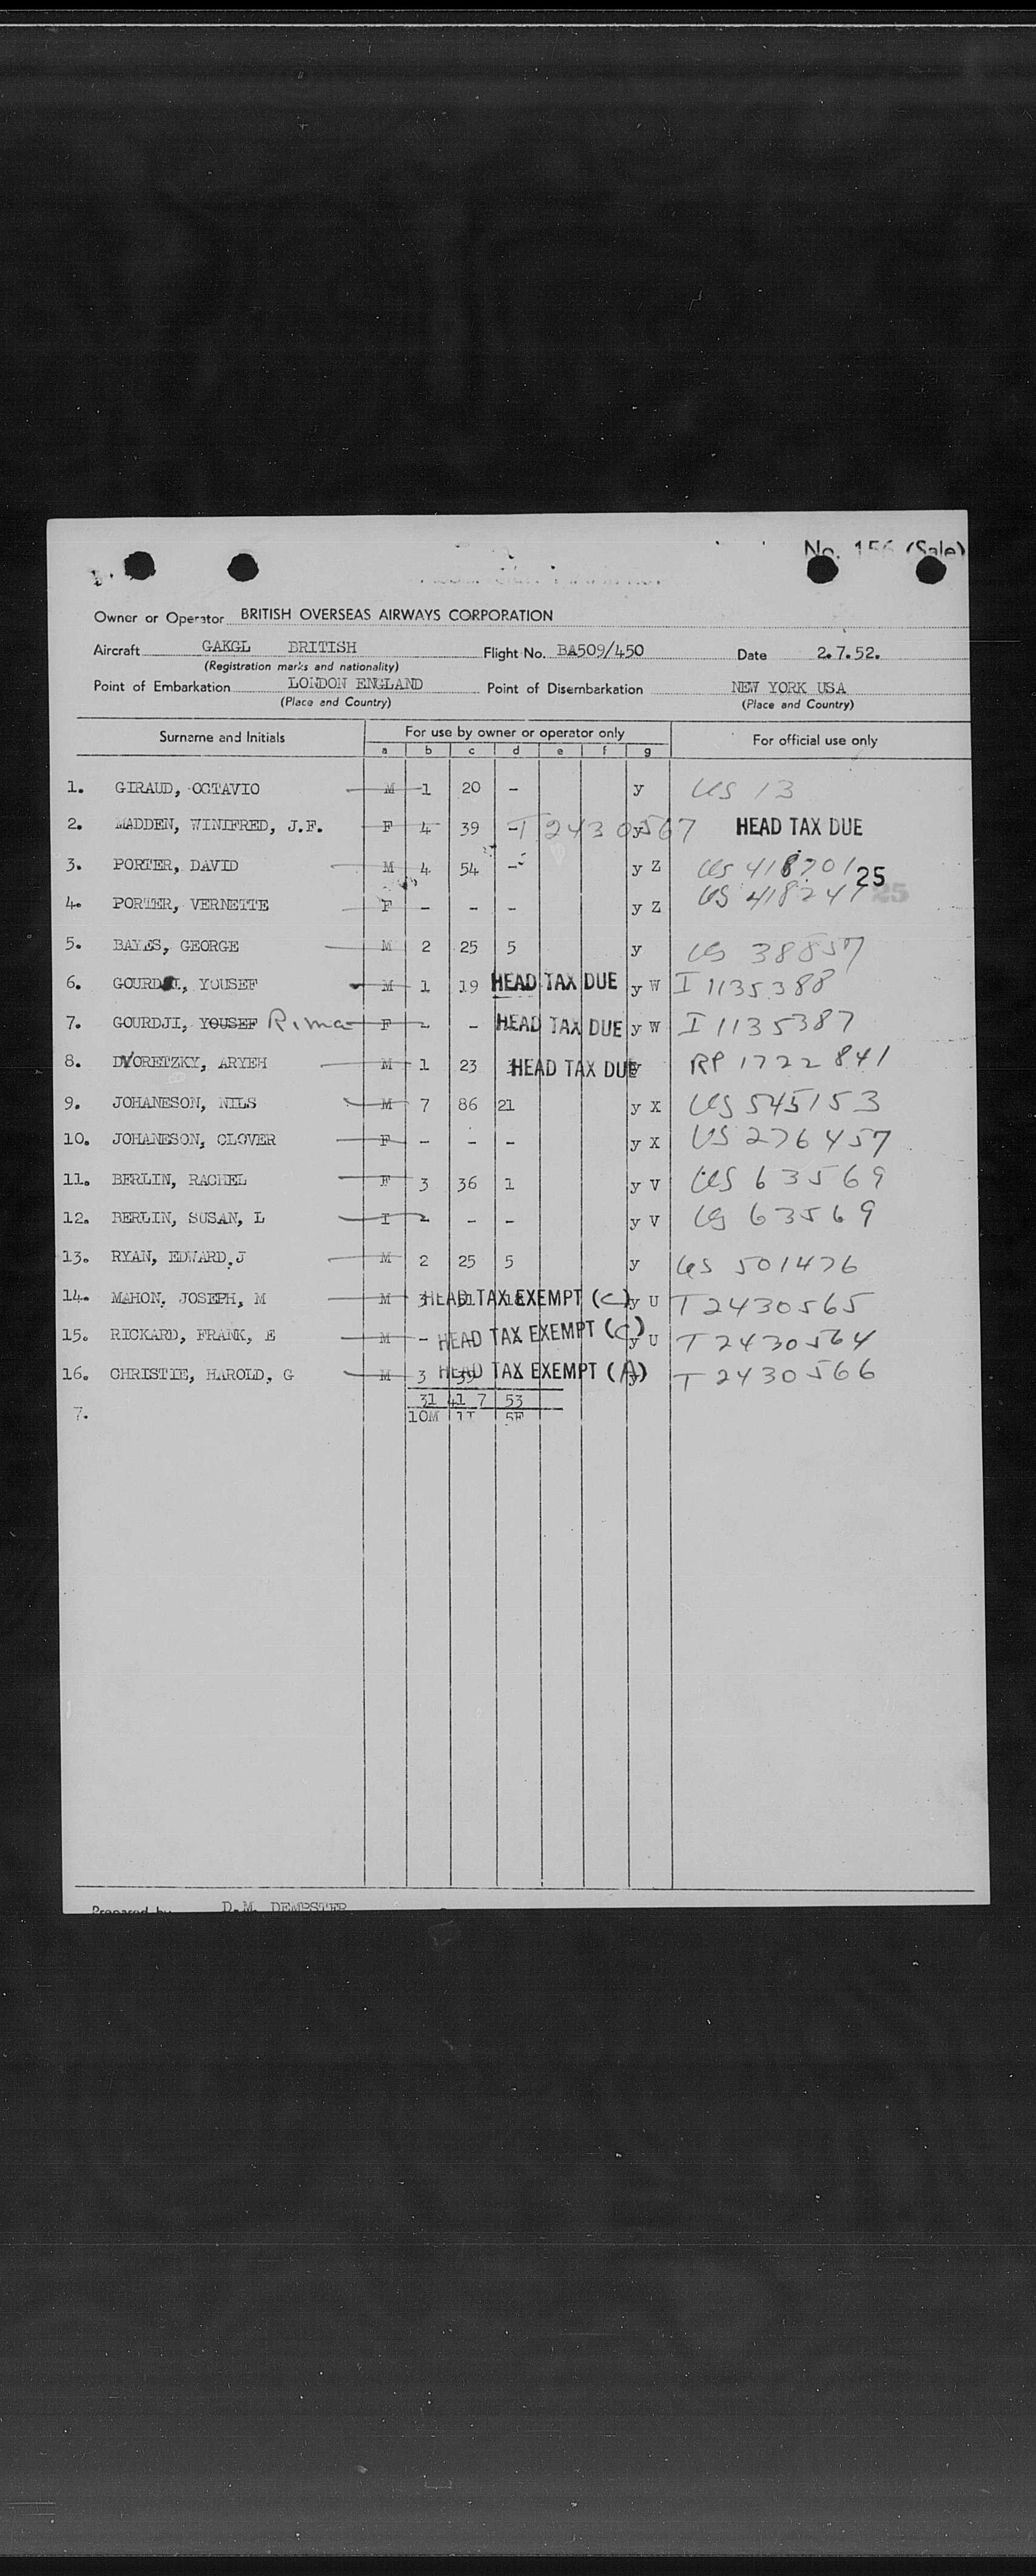 No. 156 (Sale)
Owner or Operator BRITISH OVERSEAS AIRWAYS CORPORATION
Aircraft GAKGL BRITISH Flight No. BA509/450 Date 2.7.52.
(Registration marks and nationality)
Point of Embarkation LONDON ENGLAND Point of Disembarkation NEW YORK USA
(Place and Country) (Place and Country)
Surname and Initials For use by owner or operator only For official use only
a b c d e f g
1. GIRAUD, OCTAVIO M 1 20 - y US 13
2. MADDEN, WINIFRED, J.F. F 4 39 - T 2430567 y HEAD TAX DUE
3. PORTER, DAVID M 4 54 - y Z US 418701 25
4. PORTER, VERNETTE F - - - y Z US 418247 25
5. BAYES, GEORGE M 2 25 5 y US 38857
6. GOURDJI, YOUSEF M 1 19 HEAD TAX DUE y W I 1135388
7. GOURDJI, YOUSEF Rima F - - HEAD TAX DUE y W I 1135387
8. DVORETZKY, ARYEH M 1 23 HEAD TAX DUE y RP 1722841
9. JOHANESON, NILS M 7 86 21 y X US 545153
10. JOHANESON, CLOVER F - - - y X US 276457
11. BERLIN, RACHEL F 3 36 1 y V US 63569
12. BERLIN, SUSAN, L I - - - y V US 63569
13. RYAN, EDWARD.J M 2 25 5 y US 501476
14. MAHON, JOSEPH, M M 3 HEAD TAX EXEMPT (C) y U T 2430565
15. RICKARD, FRANK, E M - HEAD TAX EXEMPT (C) y U T 2430564
16. CHRISTIE, HAROLD, G M 3 39 HEAD TAX EXEMPT (A) y T 2430566
31 41 7 53
7. 10M 1I 5F
Prepared by D.M. DEMPSTER